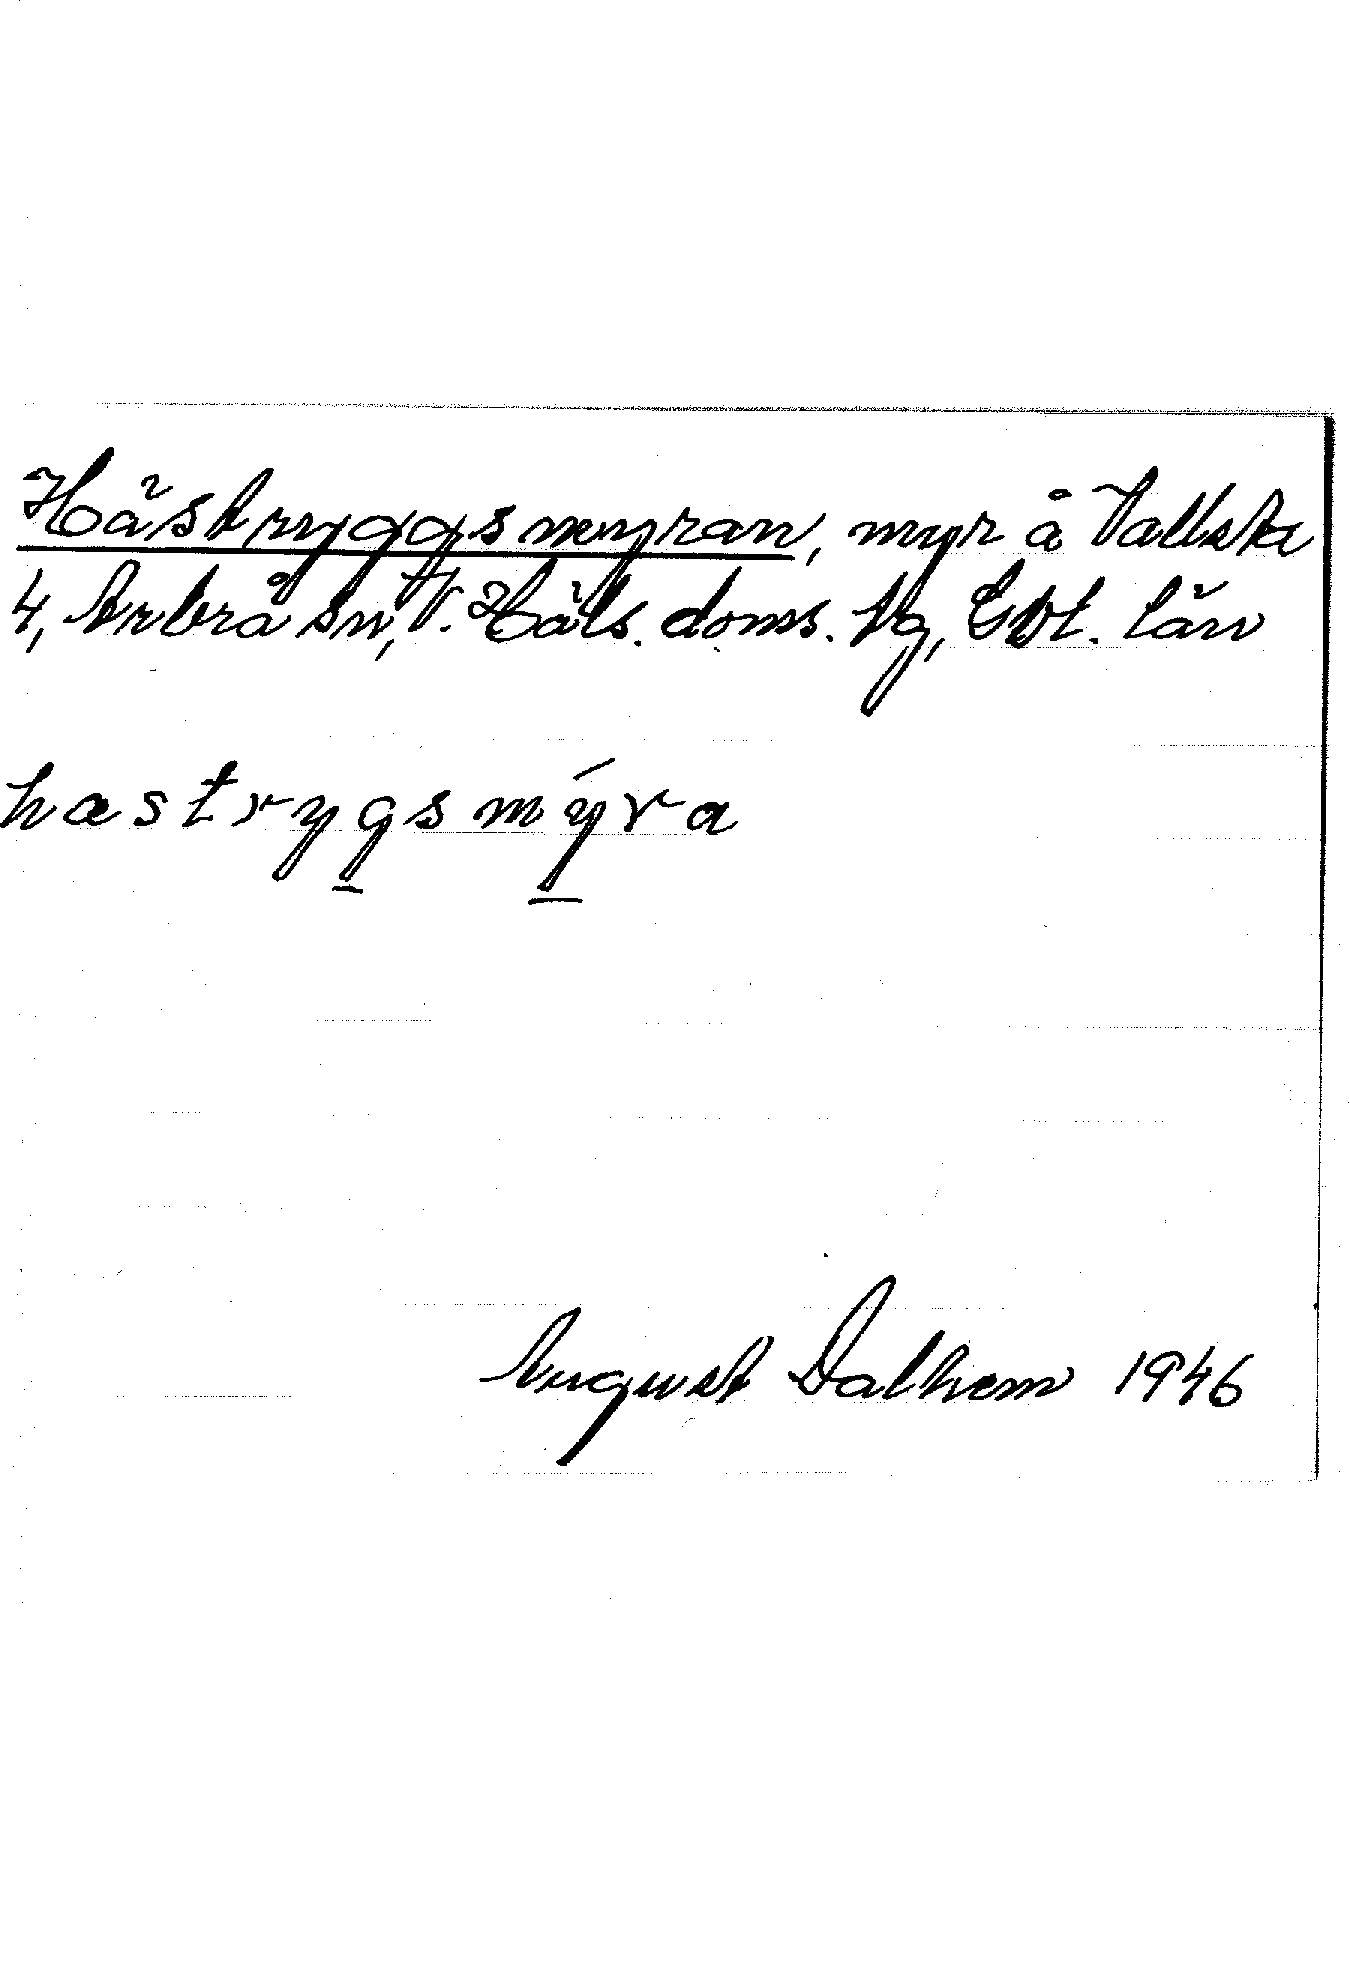 Hästryggsmyran, myr å Vallsta
4, Arbrå sn, V. Häls. doms. hg, Gvl. län
hæstrygsmy´ra
August Dalhem 1946